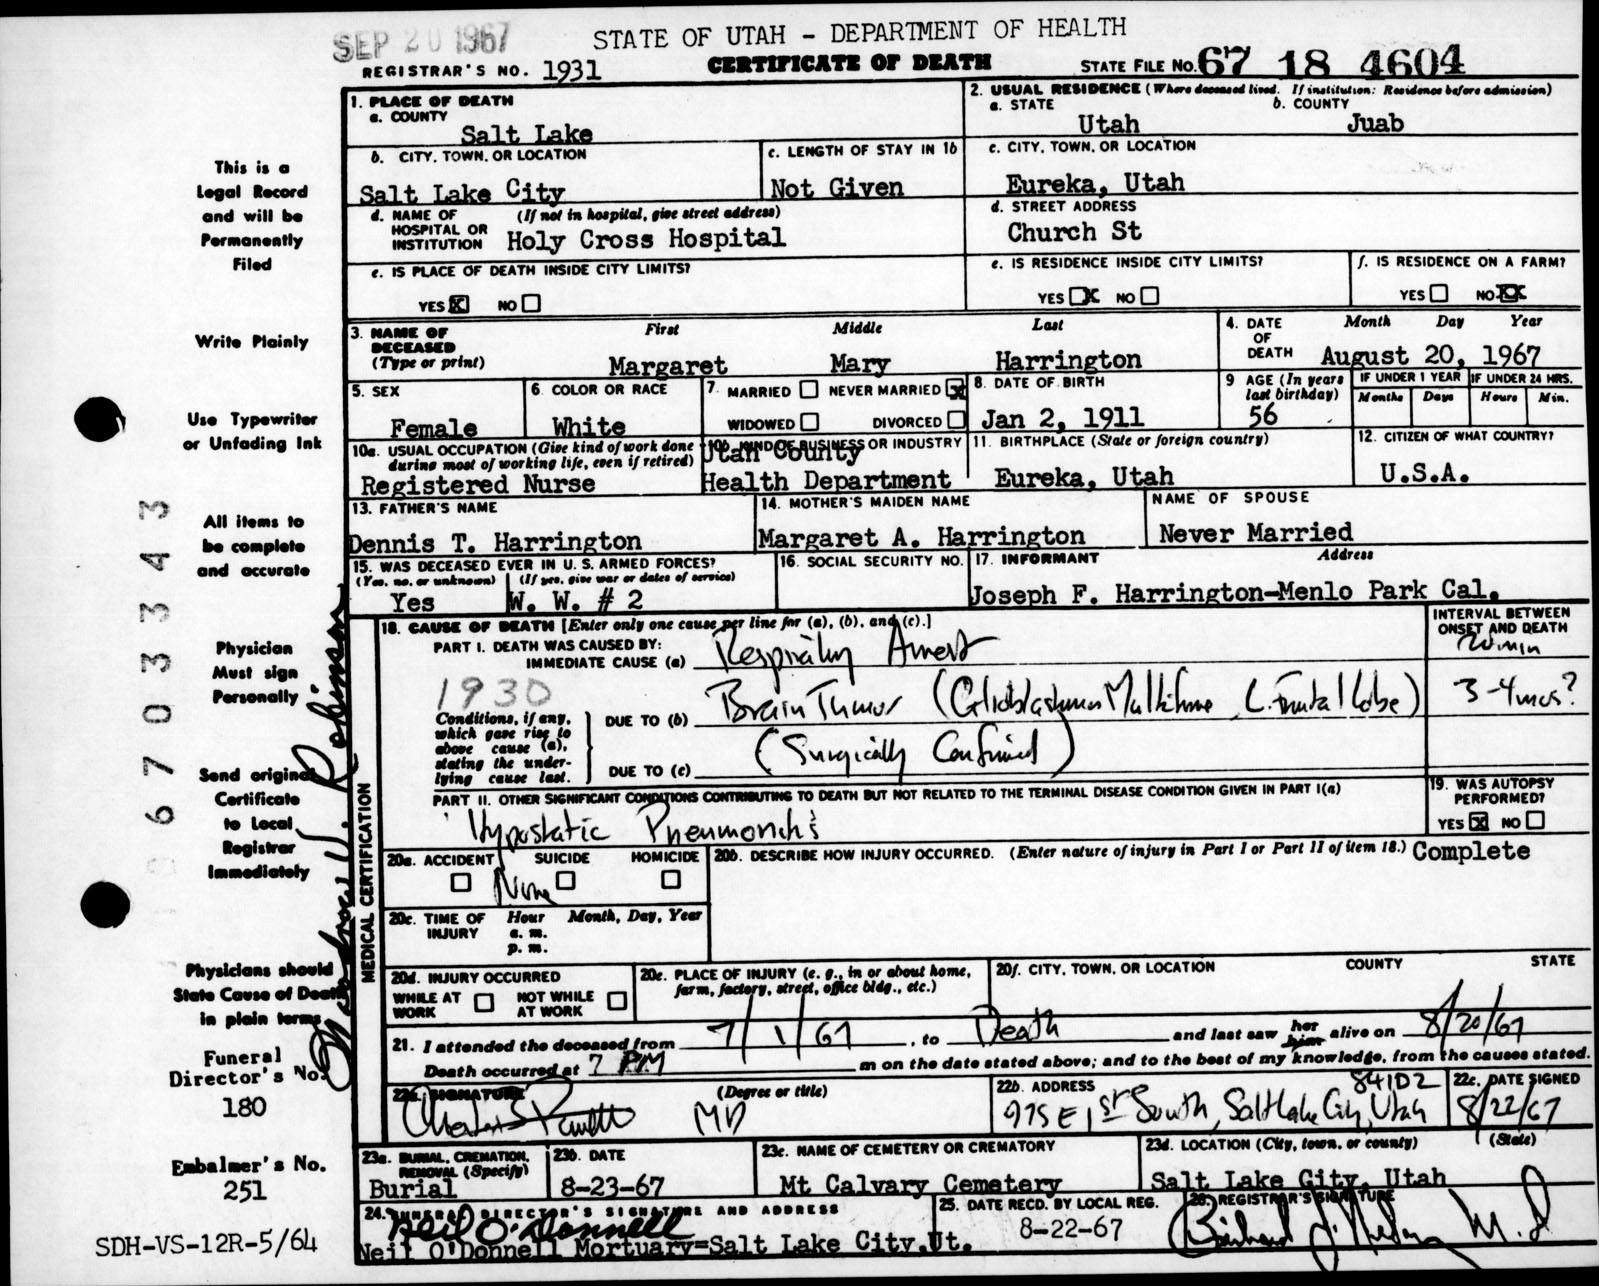 SEP 20 1967
STATE OF UTAH - DEPARTMENT OF HEALTH
REGISTRAR'S NO. 1931
CERTIFICATE OF DEATH
STATE FILE NO. 67 18 4604
1. PLACE OF DEATH
a. COUNTY
Salt Lake
2. USUAL RESIDENCE (Where deceased lived. If institution: Residence before admission)
a. STATE b. COUNTY
Utah Juab
b. CITY, TOWN, OR LOCATION
Salt Lake City
c. LENGTH OF STAY IN 1b
Not Given
c. CITY, TOWN, OR LOCATION
Eureka, Utah
d. NAME OF HOSPITAL OR INSTITUTION (If not in hospital, give street address)
Holy Cross Hospital
d. STREET ADDRESS
Church St
e. IS PLACE OF DEATH INSIDE CITY LIMITS?
YES X NO
e. IS RESIDENCE INSIDE CITY LIMITS?
YES X NO
f. IS RESIDENCE ON A FARM?
YES NO XX
3. NAME OF DECEASED (Type or print)
First Middle Last
Margaret Mary Harrington
4. DATE OF DEATH
Month Day Year
August 20, 1967
5. SEX
Female
6. COLOR OR RACE
White
7. MARRIED NEVER MARRIED X
WIDOWED DIVORCED
8. DATE OF BIRTH
Jan 2, 1911
9 AGE (In years last birthday)
56
IF UNDER 1 YEAR
Months Days
IF UNDER 24 HRS.
Hours Min.
10a. USUAL OCCUPATION (Give kind of work done during most of working life, even if retired)
Registered Nurse
10b. KIND OF BUSINESS OR INDUSTRY
Utah County
Health Department
11. BIRTHPLACE (State or foreign country)
Eureka, Utah
12. CITIZEN OF WHAT COUNTRY?
U.S.A.
13. FATHER'S NAME
Dennis T. Harrington
14. MOTHER'S MAIDEN NAME
Margaret A. Harrington
NAME OF SPOUSE
Never Married
15. WAS DECEASED EVER IN U. S. ARMED FORCES?
(Yes, no, or unknown) (If yes, give war or dates of service)
Yes W. W. # 2
16. SOCIAL SECURITY NO.
17. INFORMANT Address
Joseph F. Harrington-Menlo Park Cal.
MEDICAL CERTIFICATION
18. CAUSE OF DEATH [Enter only one cause per line for (a), (b), and (c).]
INTERVAL BETWEEN ONSET AND DEATH
PART I. DEATH WAS CAUSED BY:
IMMEDIATE CAUSE (a) Respiratory Arrest 20 min
1930
Conditions, if any, which gave rise to above cause (a), stating the underlying cause last.
DUE TO (b) Brain Tumor (Glioblastoma Multiforme L. Frontal lobe) 3-4 mos?
(Surgically Confirmed)
DUE TO (c)
PART II. OTHER SIGNIFICANT CONDITIONS CONTRIBUTING TO DEATH BUT NOT RELATED TO THE TERMINAL DISEASE CONDITION GIVEN IN PART I(a)
Hypostatic Pneumonitis
19. WAS AUTOPSY PERFORMED?
YES X NO
Complete
20a. ACCIDENT SUICIDE HOMICIDE
None
20b. DESCRIBE HOW INJURY OCCURRED. (Enter nature of injury in Part I or Part II of item 18.)
20c. TIME OF INJURY
Hour Month, Day, Year
a. m.
p. m.
20d. INJURY OCCURRED
WHILE AT WORK NOT WHILE AT WORK
20e. PLACE OF INJURY (e. g., in or about home, farm, factory, street, office bldg., etc.)
20f. CITY, TOWN, OR LOCATION COUNTY STATE
21. I attended the deceased from 7/1/67, to Death and last saw her him alive on 8/20/67
Death occurred at 7 PM m on the date stated above; and to the best of my knowledge, from the causes stated.
22a. SIGNATURE (Degree or title)
MD
22b. ADDRESS
84102
975 E 1st South, Salt Lake City, Utah
22c. DATE SIGNED
8/22/67
23a. BURIAL, CREMATION, REMOVAL (Specify)
Burial
23b. DATE
8-23-67
23c. NAME OF CEMETERY OR CREMATORY
Mt Calvary Cemetery
23d. LOCATION (City, town, or county) (State)
Salt Lake City, Utah
24. FUNERAL DIRECTOR'S SIGNATURE AND ADDRESS
Neil O'Donnell
Neil O'Donnell Mortuary=Salt Lake City,Ut.
25. DATE RECD. BY LOCAL REG.
8-22-67
26. REGISTRAR'S SIGNATURE
M.D
This is a
Legal Record
and will be
Permanently
Filed
Write Plainly
Use Typewriter
or Unfading Ink
All items to
be complete
and accurate
Physician
Must sign
Personally
Send original
Certificate
to Local
Registrar
Immediately
Physicians should
State Cause of Death
in plain terms
Funeral
Director's No.
180
Embalmer's No.
251
SDH-VS-12R-5/64
67033343
Robinson